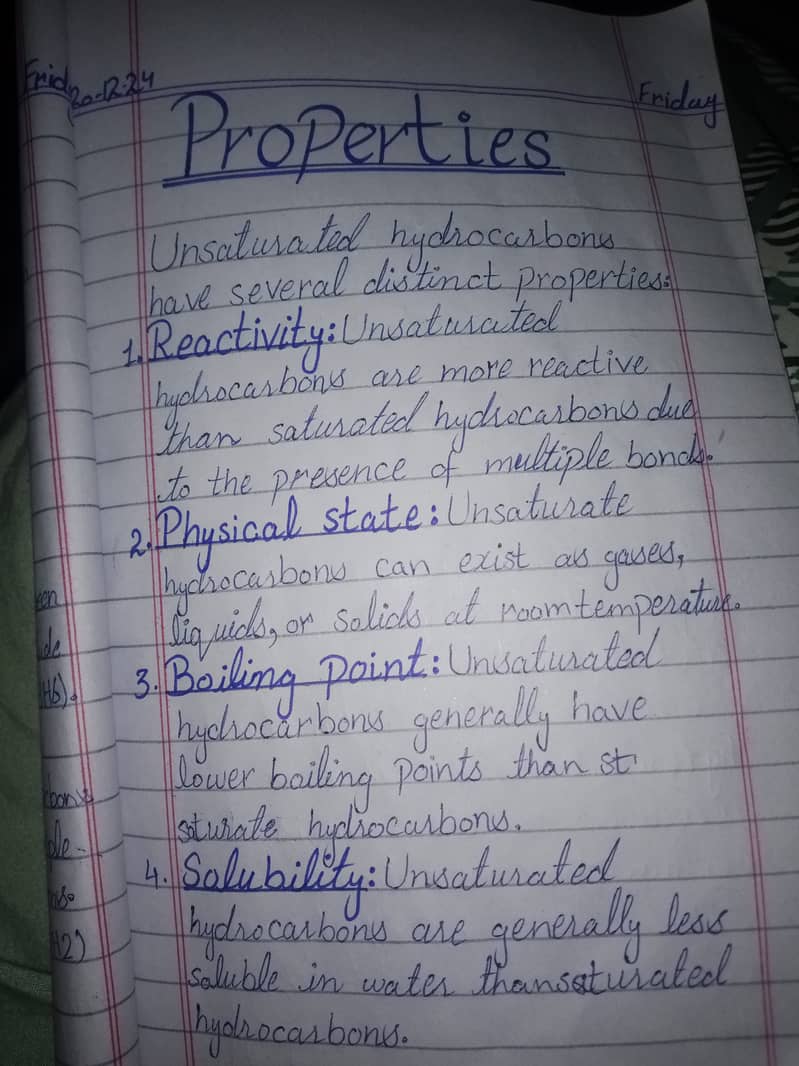 Frid
20-12-24
Friday
Properties
Unsaturated hydrocarbons
have several distinct properties:
1. Reactivity: Unsaturated
hydrocarbons are more reactive
than saturated hydrocarbons due
to the presence of multiple bonds.
2. Physical state: Unsaturate
hydrocarbons can exist as gases,
liquids, or solids at room temperature.
3. Boiling point: Unsaturated
hydrocarbons generally have
lower boiling points than st
saturate hydrocarbons.
4. Solubility: Unsaturated
hydrocarbons are generally less
soluble in water than saturated
hydrocarbons.
en
de
H6).
bons
de-